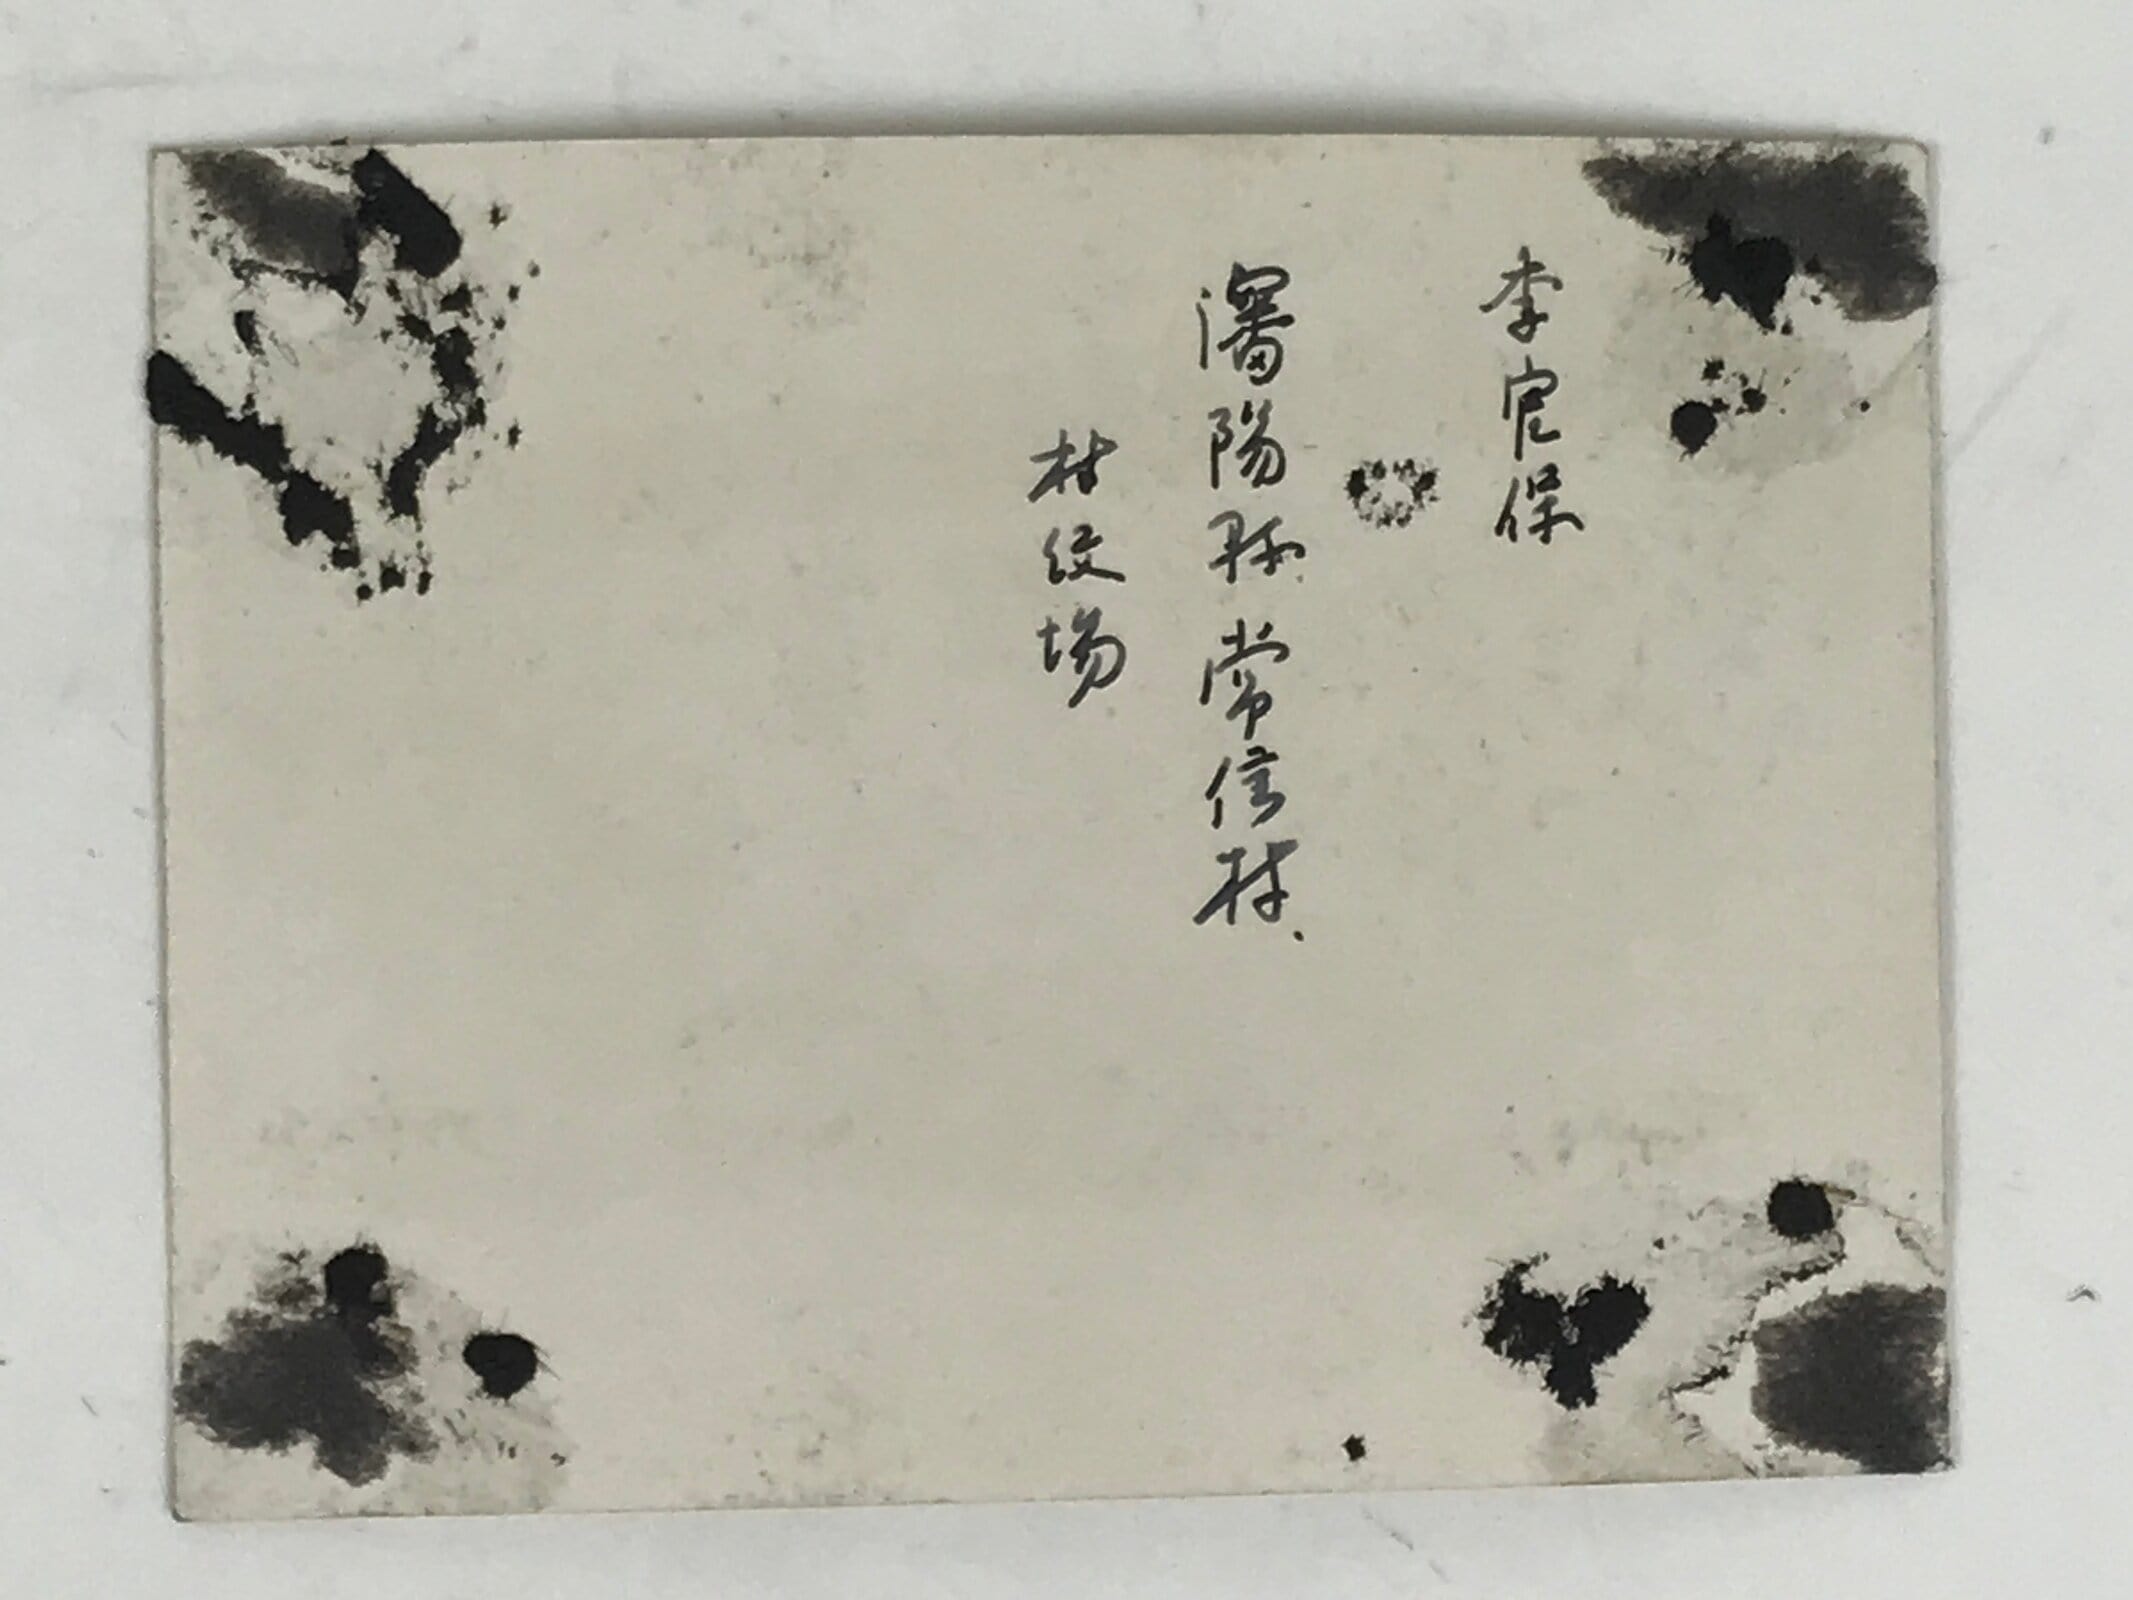 李官保
瀋陽縣常信村
村纹場